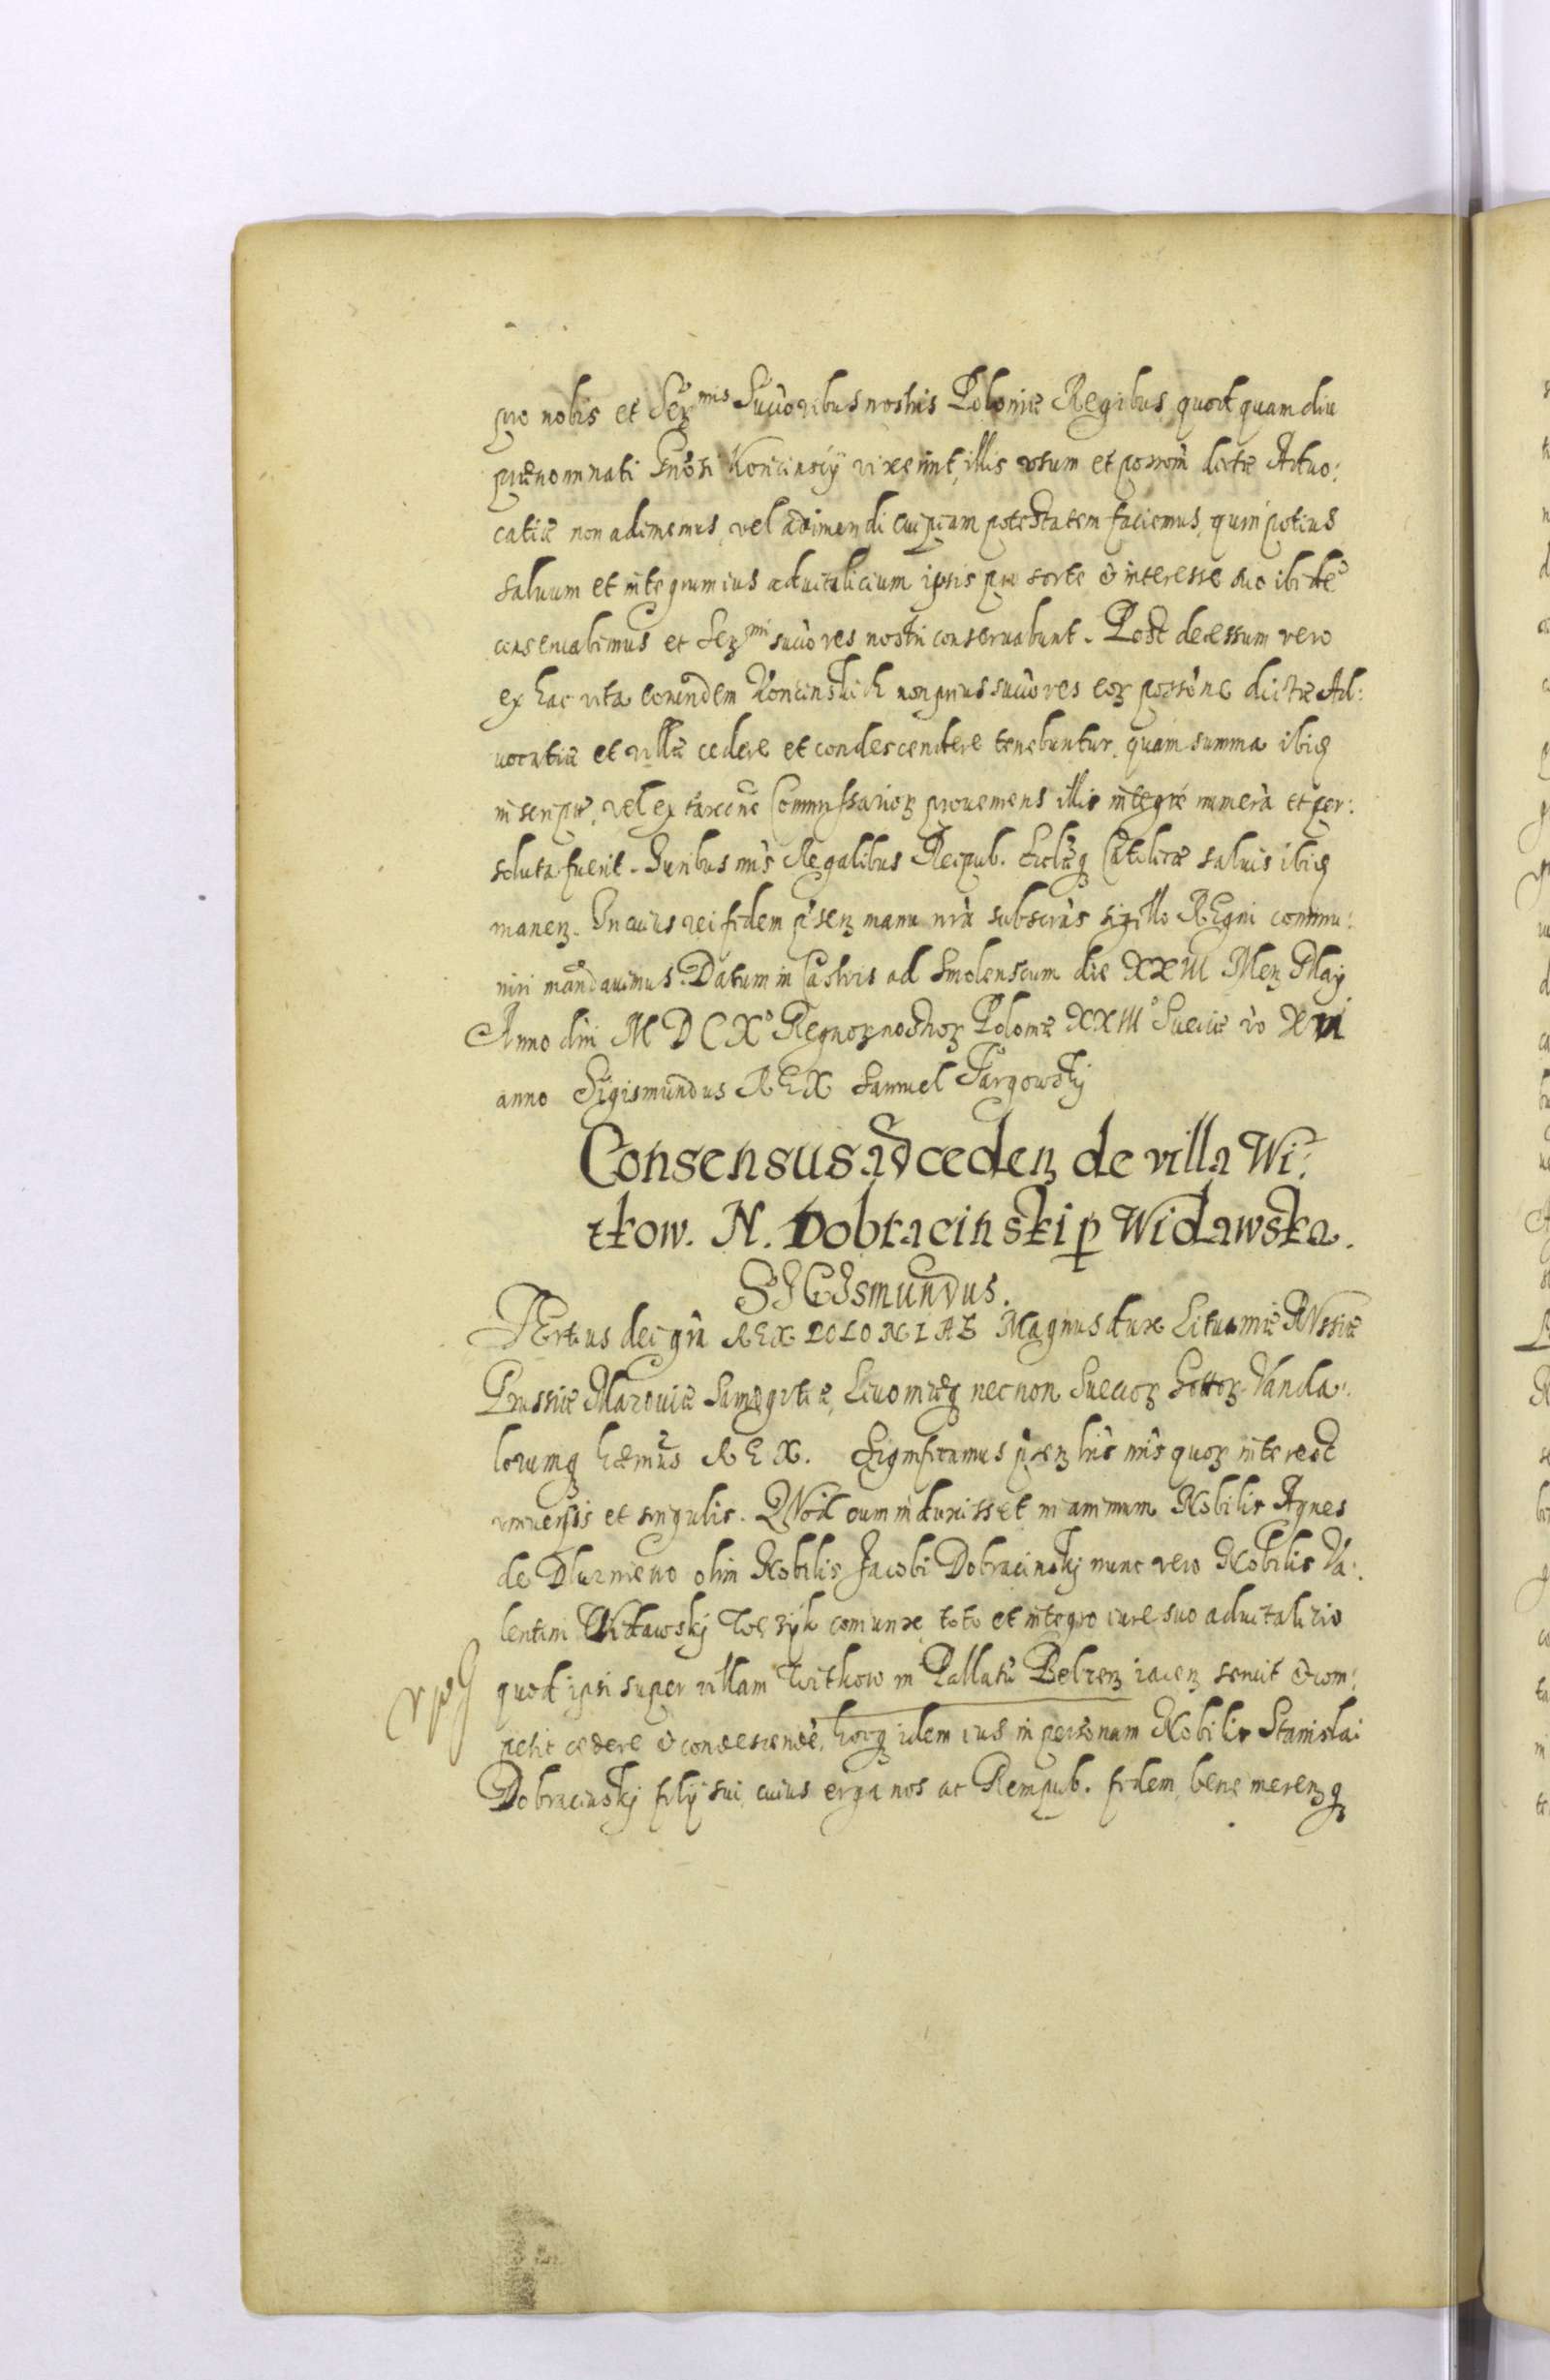 pro nobis et Serꝫmis Succoribus nostris Poloniæ Regibus, quod quamdiu
prænominati Gnosi Koncinscÿ vixerint, illis usum et possom dictæ Advo:
catiæ non adimemus, vel adimendi cuipiam potestatem faciemus, quin potius
saluum et integrum ius aduitalicium ipsis pro sorte & interesse suo ibidē
conseruabimus et Serꝫmi succores nostri conseruabunt. Post decessum vero
ex hac vita eorundem Koncinskich non prius succores eorꝫ possōne dictæ Ad:
uocatiæ et villæ cedere et condescendere tenebuntur, quam summa ibidꝫ
inscripta, vel ex taxōne Commissariorꝫ proueniens illis integre numera et per:
soluta fuerit. Iuribus nris Regalibus Reipub. Ecclæqꝫ Catolicæ saluis ibidꝫ
manenꝫ. In cuius rei fidem pñsenꝫ manu nrā subscras sigillo REgni commu:
niri mandauimus. Datum in Castris ad Smolenscum die XXIII Menꝫ May
Anno dni MDCX° Regnorꝫ nostrorꝫ Poloniæ XXIII° Sueciæ vo XVI
anno Sigismundus REX Samuel Targowskj
Consensus ad cedenꝫ de villa Wi:
tkow. N. Dobracinski p Widawska.
SIGIsmundus.
TErtius dei grā REX POLONIAE Magnus dux Lituaniæ RUssiæ
Prussiæ Mazouiæ Samogitiæ, Liuoniæqꝫ necnon Sueuorꝫ Gottorꝫ Vanda:
lorumqꝫ hæres REX. Significamus prēnꝫ lris nris quorꝫ interest
vniuersis et singulis. QVod cum induxisset in animum Nobilis Agnes
de Dluzniewo olim Nobilis Jacobi Dobracinskj nunc vero Nobilis Va:
lentini Widawskj Wezyk coniunx toto et integro iure suo aduitalitio
quod ipsi super villam Witkow in Pallatū Belzenꝫ iacenꝫ seruit & com:
petit cedere & condescende, hocqꝫ idem ius in personam Nobilis Stanislai
Dobracinskj filÿ sui, cuius erga nos ac Rempub. fidem, bene merenꝫqꝫ